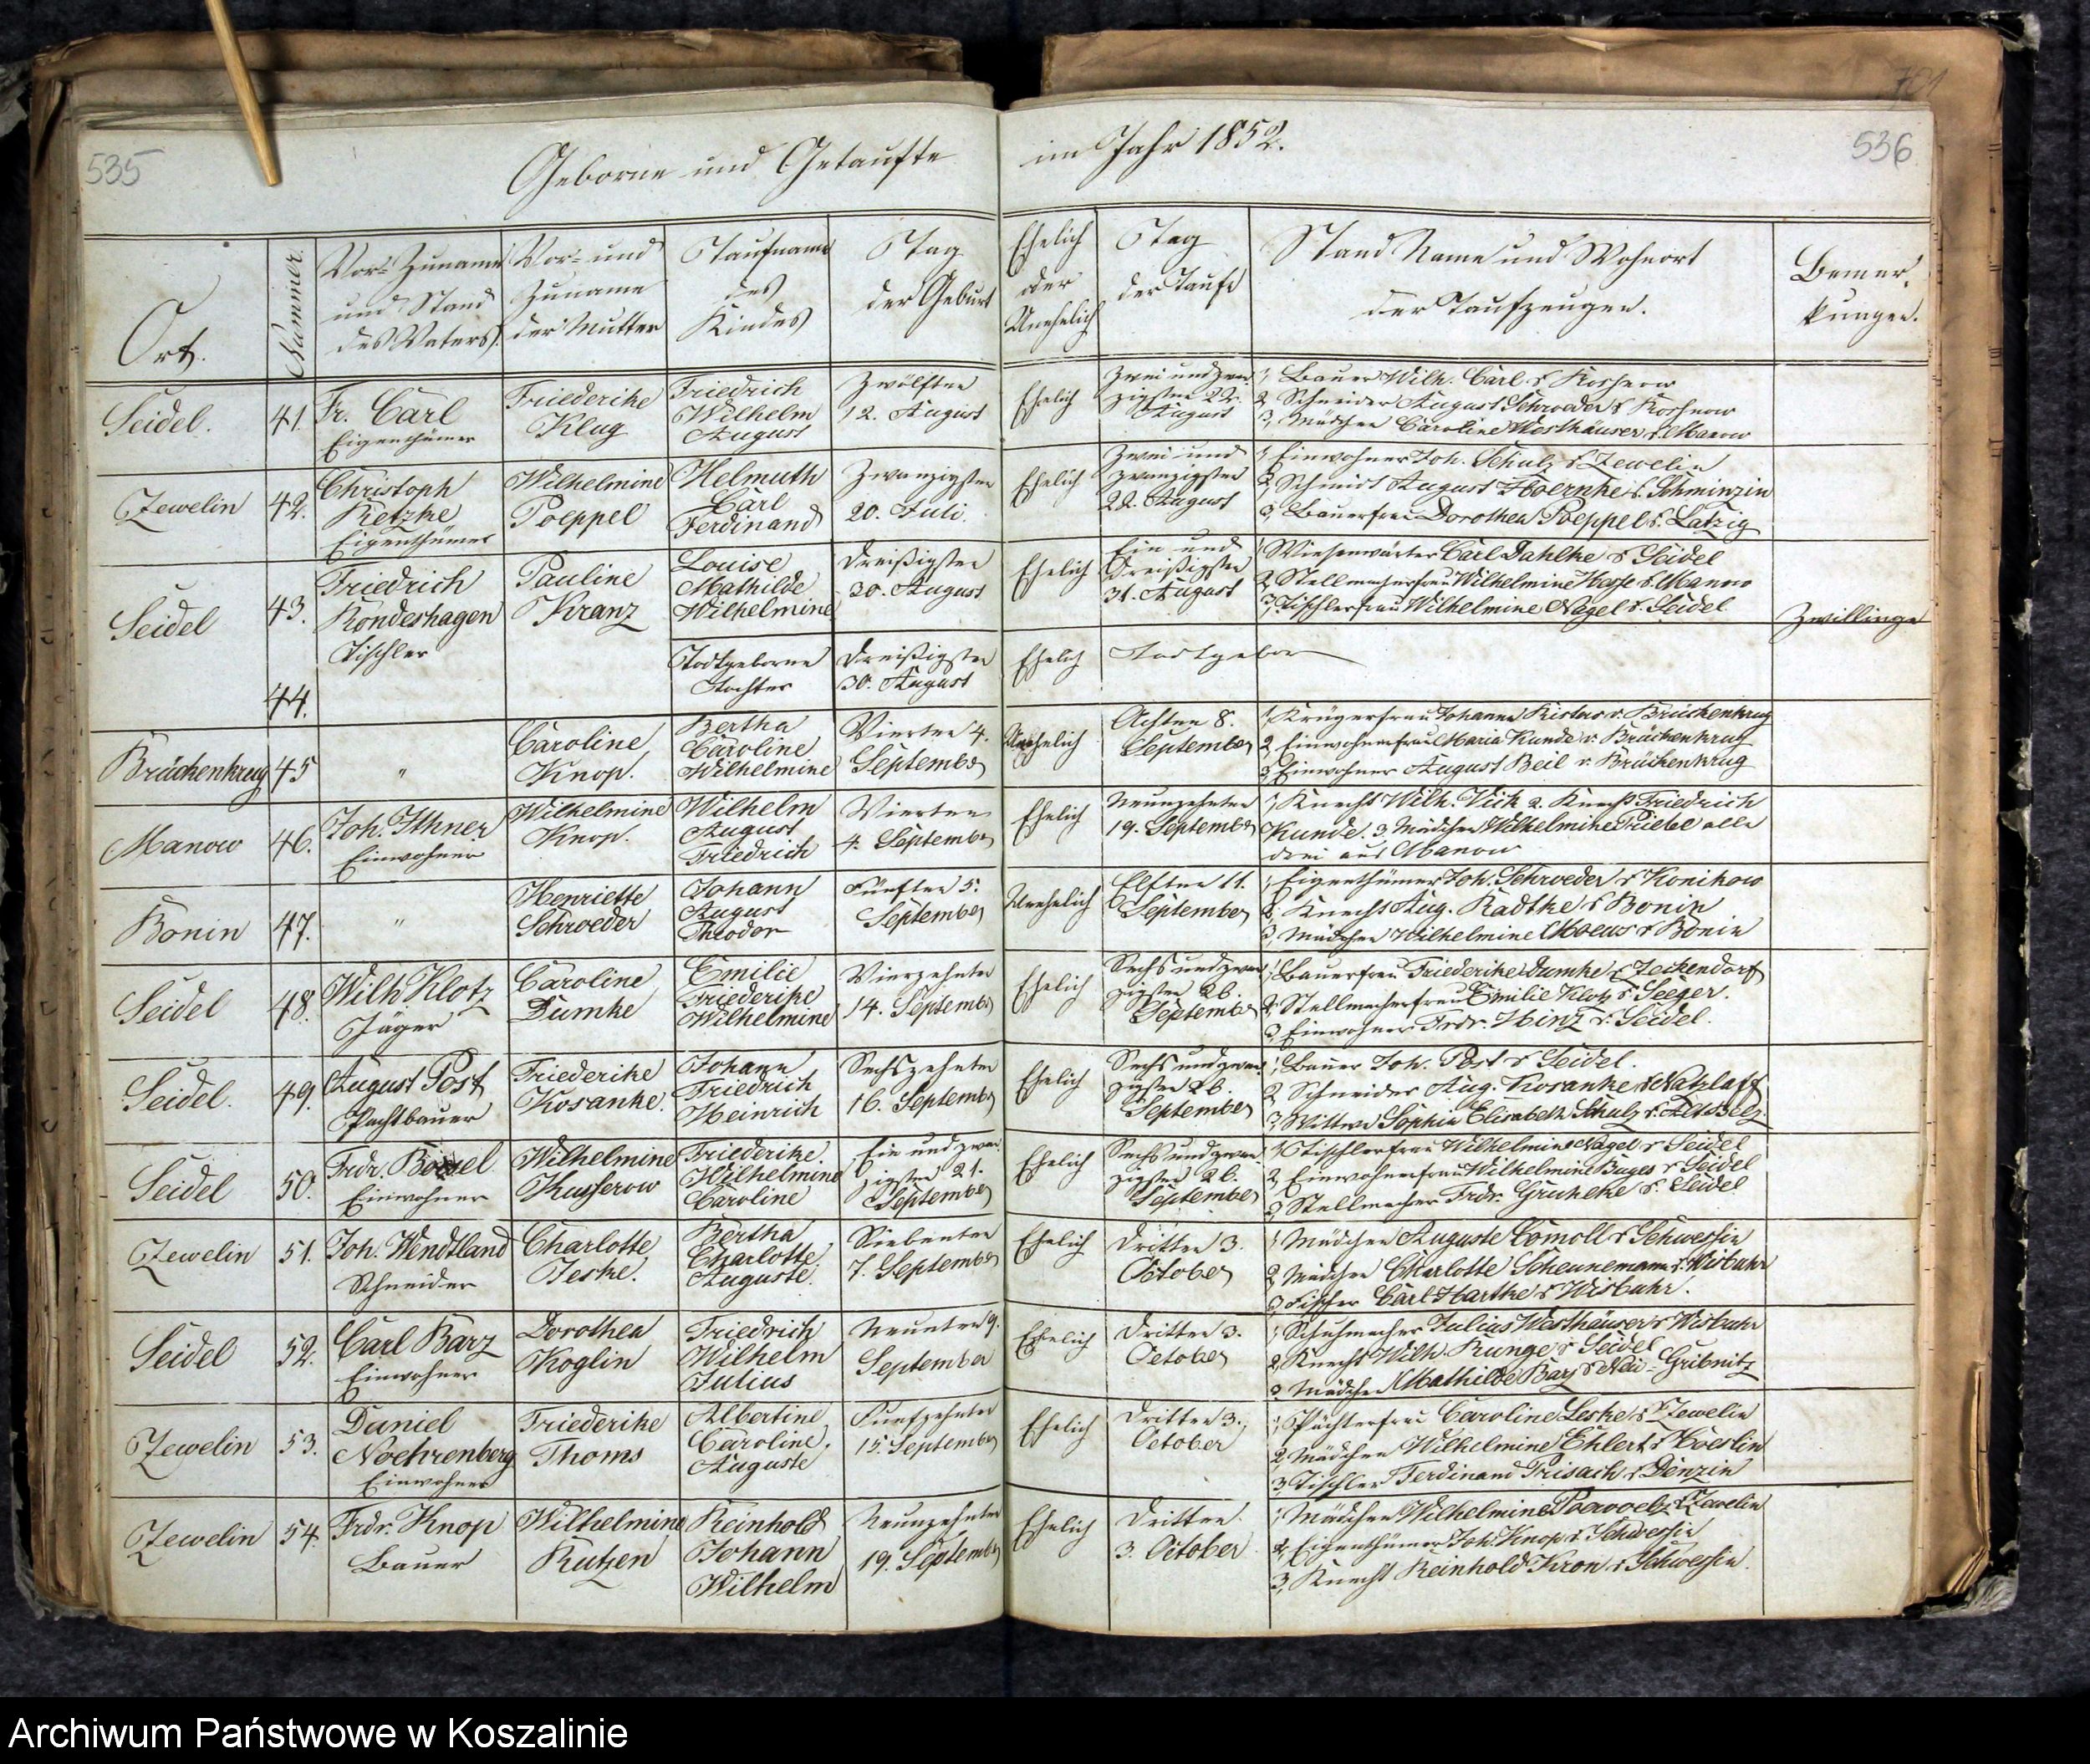 535
Geborne und Getaufte im Jahr 1852.
536
701
Ort.
Nummer.
Vor- Zuname
und Stand
des Vaters.
Vor- und
Zuname
der Mutter
Taufname
des
Kindes
Tag
der Geburt
Ehelich
oder
Unehelich
Tag
der Taufe
Stand Name und Wohnort
der Taufzeugen.
Bemer-
kungen.
Seidel.
41.
Fr. Carl
Eigenthümer
Friederike
Klug
Friedrich
Wilhelm
August
Zwölften
12. August
Ehelich
Zwei und zwan-
zigsten 22.
August
1, Bauer Wilh. Carl v. Roshnow
2, Schneider August Schroeder v. Roshnow
3, Mädchen Caroline Westhäuser v. Manow
Zewelin
42.
Christoph
Retzke
Eigenthümer
Wilhelmine
Poeppel
Helmuth
Carl
Ferdinand
Zwanzigsten
20. Juli
Ehelich
Zwei und
zwanzigsten
22. August
1, Einwohner Joh. Schulz v. Zewelin
2, Schmidt August Hoernke v. Schminzin
3, Bauerfrau Dorothea Poeppel v. Latzig
Seidel
43.
Friedrich
Kondeshagen
Tischler
Pauline
Kranz
Louise
Mathilde
Wilhelmine
Dreißigsten
30. August
Ehelich
Ein und
dreißigsten
31. August
1, Wiesenwärter Carl Dahlke v. Seidel
2, Stellmacherfrau Wilhelmine Hesse v. Manow
3, Tischlerfrau Wilhelmine Nagel v. Seidel
Zwillinge
44.
Todtgeborne
Tochter
Dreißigsten
30. August
Ehelich
Todtgebor
Brückenkrug
45
"
Caroline
Knop.
Bertha
Caroline
Wilhelmine
Vierten 4.
September
Unehelich
Achten 8.
September
1, Krügerfrau Johanna Risters v. Brückenkrug
2, Einwohnerfrau Maria Kunde v. Brückenkrug
3, Einwohner August Beil v. Brückenkrug
Manow
46.
Joh. Ithner
Einwohner
Wilhelmine
Knop.
Wilhelm
August
Friedrich
Vierten
4. September
Ehelich
Neunzehnten
19. September
1, Knecht Wilh. Vick 2. Knecht Friedrich
Kunde. 3 Mädchen Wilhelmine Priebe alle
drei aus Manow
Bonin
47.
"
Henriette
Schroeder
Johann
August
Theodor
Fünften 5.
September
Unehelich
Elften 11.
September
1, Eigenthümer Joh. Schroeder v. Konikow
2, Knecht Aug. Radtke v. Bonin
3, Mädchen Wilhelmine Moews v. Bonin
Seidel
48.
Wilh Klotz
Jäger
Caroline
Dumke
Emilie
Friederike
Wilhelmine
Vierzehnten
14. September
Ehelich
Sechs und zwan-
zigsten 26
September
1, Bauerfrau Friederike Dumke v. Zeckendorf
2, Stellmacherfrau Emilie Klotz v. Seeger.
3, Einwohner Frdr. Hinz v. Seidel.
Seidel.
49.
August Post
Pachtbauer
Friederike
Kosanke.
Johann
Friedrich
Heinrich
Sechszehnten
16. September
Ehelich
Sechs und zwan-
zigsten 26
September
1, Bauer Joh. Post v. Seidel.
2, Schneider Aug. Kosanke v. Natzlaff
3, Wittwe Sophie Elisabeth Schulz v. Alt Belz.
Seidel
50.
Einwohner
Wilhelmine
Kusserow
Friederike
Wilhelmine
Caroline
Ein und zwan-
zigsten 21.
September
Ehelich
Sechs und zwan-
zigsten 26.
September
1, Tischlerfrau Wilhelmine Nagel v. Seidel
2, Einwohnerfrau Wilhelmine Buges v. Seidel
3, Stellmacher Frdr. Gruhlke v. Seidel
Zewelin
51.
Joh. Wendtland
Schneider
Charlotte
Jeske.
Bertha
Charlotte
Auguste.
Siebenten
7. September
Ehelich
Dritten 3.
October
1, Mädchen Auguste Comoll v. Schwessin
2, Mädchen Charlotte Scheunemann v. Wisbuhr
3, Fischer Carl Harthe v. Wisbuhr.
Seidel
52.
Carl Barz
Einwohner
Dorothea
Koglin
Friedrich
Wilhelm
Julius
Neunten 9.
September
Ehelich
Dritten 3.
October
1, Schuhmacher Julius Westhäuser v. Wisbuhr
2, Knecht Wilh. Runge v. Seidel
3, Mädchen Mathilde Barz v. Neu-Gribnitz
Zewelin
53.
Daniel
Noehrenberg
Einwohner
Friederike
Thoms
Albertine
Caroline
Auguste
Funfzehnten
15. September
Ehelich
Dritten 3.
October
1, Pächterfrau Caroline Leske v. Zewelin
2, Mädchen Wilhelmine Ehlert v. Coeslin
3, Tischler Ferdinand Prisack v. Denzin
Zewelin
54.
Frdr. Knop
Bauer
Wilhelmine
Rutzen
Reinhold
Johann
Wilhelm
Neunzehnten
19. September
Ehelich
Dritten
3. October
1, Mädchen Wilhelmine v. Zewelin
2, Eigenthümer Joh. Knop v. Schwessin
3, Knecht Reinhold Kron v. Schwessin.
Archiwum Państwowe w Koszalinie